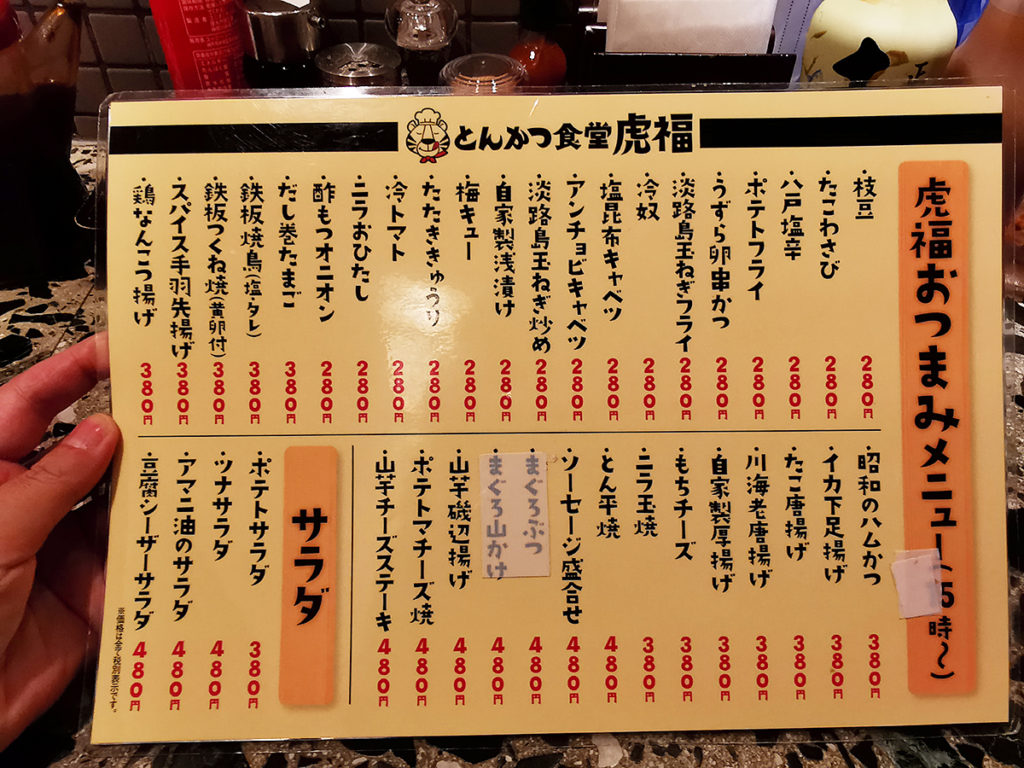 とんかつ食堂 虎福
虎福おつまみメニュー(15時〜)
・枝豆 280円
・たこわさび 280円
・八戸塩辛 280円
・ポテトフライ 280円
・うずら卵串かつ 280円
・淡路島玉ねぎフライ 280円
・冷奴 280円
・塩昆布キャベツ 280円
・アンチョビキャベツ 280円
・淡路島玉ねぎ炒め 280円
・自家製浅漬け 280円
・梅キュー 280円
・たたききゅうり 280円
・冷トマト 280円
・ニラおひたし 280円
・酢もつオニオン 280円
・だし巻たまご 380円
・鉄板焼鳥(塩・タレ) 380円
・鉄板つくね焼(黄卵付) 380円
・スパイス手羽先揚げ 380円
・鶏なんこつ揚げ 380円
・昭和のハムかつ 380円
・イカ下足揚げ 380円
・たこ唐揚げ 380円
・川海老唐揚げ 380円
・自家製厚揚げ 380円
・もちチーズ 380円
・ニラ玉焼 380円
・とん平焼 480円
・ソーセージ盛合せ 480円
・まぐろぶつ 480円
・まぐろ山かけ 480円
・山芋磯辺揚げ 480円
・ポテトマチーズ焼 480円
・山芋チーズステーキ 480円
サラダ
・ポテトサラダ 380円
・ツナサラダ 480円
・アマニ油のサラダ 480円
・豆腐シーザーサラダ 480円
※価格は全て税別表示です。